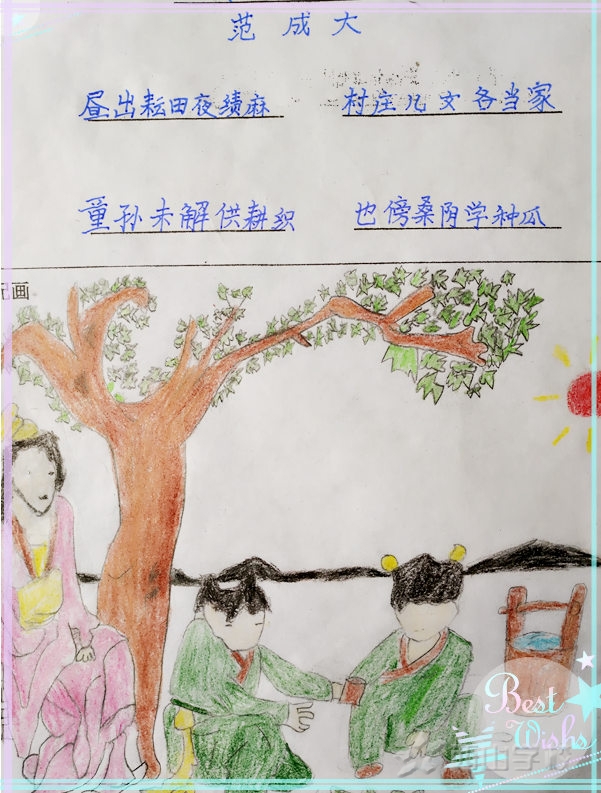 范成大
昼出耘田夜绩麻 村庄儿女各当家
童孙未解供耕织 也傍桑阴学种瓜
配画
Best
Wishs